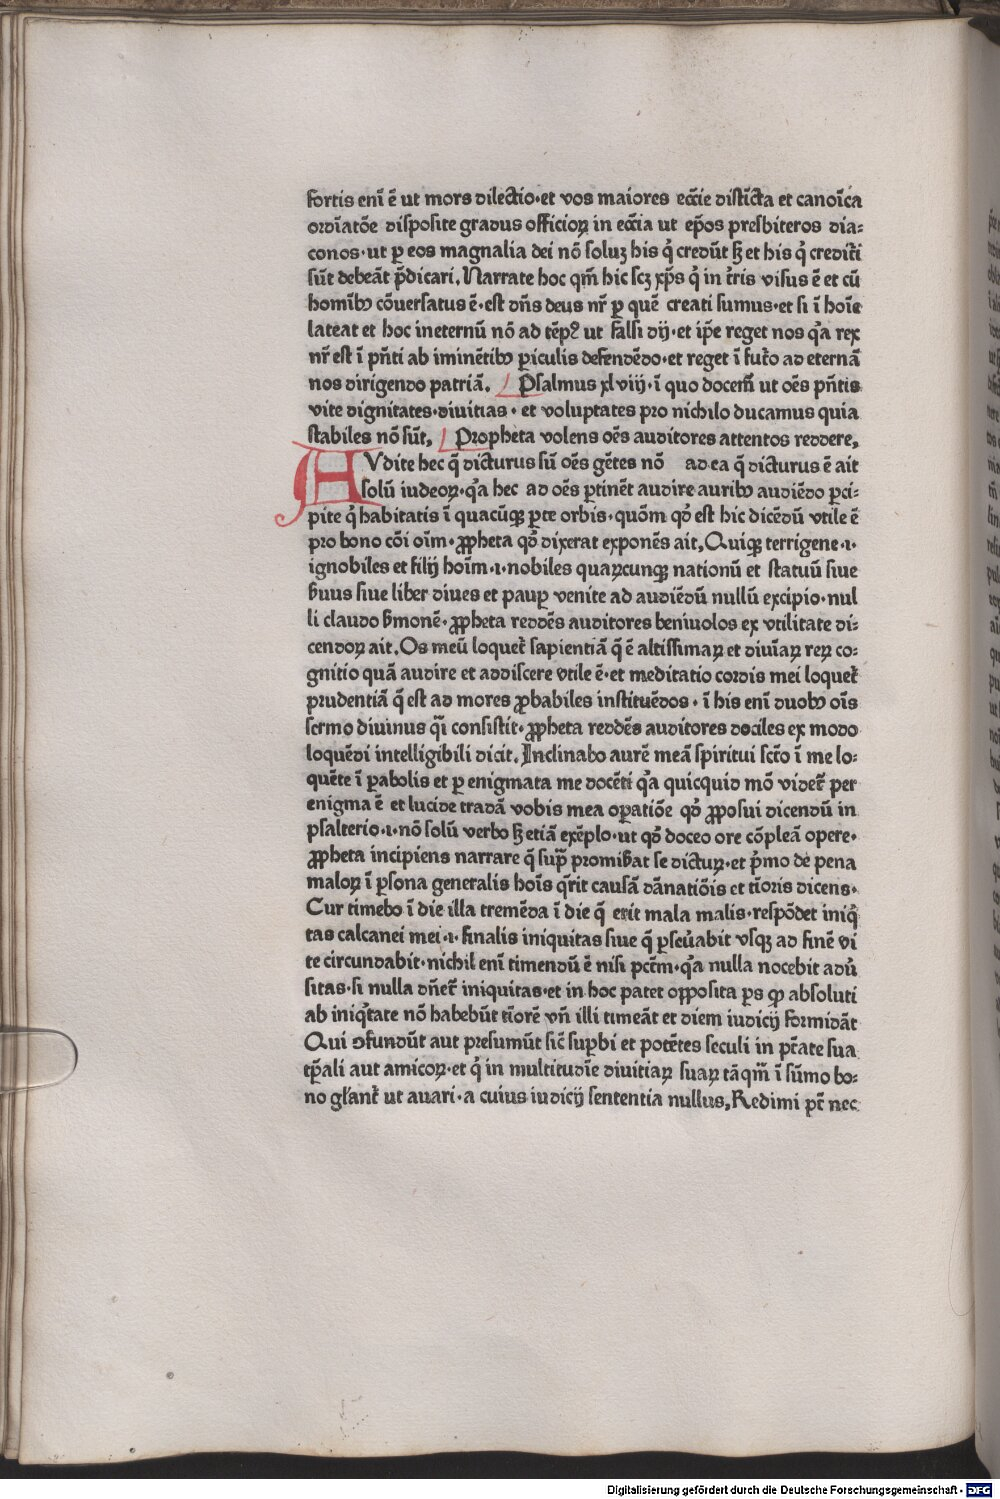 fortis enī ē ut mors dilectio·et vos maiores eccīe distīcta et canoīca
ordīatōe disposite gradus officioꝝ in eccīa ut ep̄os presbiteros dia⸗
conos·ut ꝑ eos magnalia dei nō soluꝫ his q̇ credūt sꝫ et his q̇ crediti
sūt debeāt p̄dicari. Narrate hoc qm̄ hic scꝫ xp̄s q̇ in t̄ris visus ē et cū
homībꝰ cōversatus ē·est dn̄s deus nr̄ ꝑ quē creati sumus·et si ī hoīe
lateat et hoc ineternū nō ad tēpꝰ ut falsi dij·et ip̄e reget nos q̇a rex
nr̄ est ī pn̄ti ab iminētibꝰ ꝑiculis defendēdo·et reget ī fut̄o ad eternā
nos dirigendo patriā. Psalmus xlviij·ī quo docem̄ ut oēs pn̄tis
vite dignitates·divitias·et voluptates pro nichilo ducamus quia
stabiles nō sūt, Propheta volens oēs auditores attentos reddere,
AVdite hec q̄ dicturus sū oēs gētes nō ad ea q̄ dicturus ē ait
solū iudeoꝝ·q̇a hec ad oēs ꝑtinēt audire auribꝰ audiēdo ꝑci⸗
pite q̇ habitatis ī quacūqꝫ ꝑte orbis·quōm qꝺ̇ est hic dicēdū vtile ē
pro bono cōi oīm·ꝓpheta qꝺ̇ dixerat exponēs ait, Quiqꝫ terrigene·i·
ignobiles et filij hoīm·i·nobiles quaꝝcunqꝫ nationū et statuū siue
ẜuus siue liber dives et pauꝑ venite ad audiēdū nullū excipio·nul
li claudo ẜmonē·ꝓpheta reddēs auditores benivolos ex vtilitate di⸗
cendoꝝ ait. Os meū loquet̄ sapientiā q̄ ē altissimaꝝ et diviaꝝ reꝝ co⸗
gnitio quā audire et addiscere vtile ē·et meditatio cordis mei loquet̄
prudentiā q̄ est ad mores ꝓbabiles instituēdos·ī his enī duobꝰ oīs
sermo divinus qī consistit·ꝓpheta reddēs auditores dociles ex modo
loquēdi intelligibili dicit. Inclinabo aurē meā spiritui sctō ī me lo⸗
quēte ī ꝑabolis et ꝑ enigmata me docēti q̇a quicquid mō videt̄ per
enigma ē et lucide tradā vobis mea oꝑatiōe qꝺ̇ ꝓposui dicendū in
psalterio·i·nō solū verbo sꝫ etiā exēplo·ut qꝺ̇ doceo ore cōpleā opere·
ꝓpheta incipiens narrare q̄ sup̄ promiẜat se dictuꝝ·et ṗmo de pena
maloꝝ ī ꝑsona generalis hoīs q̄rit causā dānatiōis et tīoris dicens·
Cur timebo ī die illa tremēda ī die q̄ erit mala malis·respōdet iniq̇
tas calcanei mei·i·finalis iniquitas siue q̄ ꝑseūabit vsqꝫ ad finē vi
te circundabit·nichil enī timendū ē nisi pctm̄·q̇a nulla nocebit adū
sitas·si nulla dn̄et̄ iniquitas·et in hoc patet opposita ꝑs ꝙ absoluti
ab iniq̇tate nō habebūt tīorē vn̄ illi timeāt et diem iudicij formidāt
Qui ꝯfundūt aut presumūt sic̄ suꝑbi et potētes seculi in pt̄ate sua
tp̄ali aut amicoꝝ·et q̇ in multitudīe divitiaꝝ suaꝝ tāqm̄ ī sūmo bo⸗
no gl̄ant̄ ut avari·a cuius iudicij sententia nullus, Redimi pt̄ nec
Digitalisierung gefördert durch die Deutsche Forschungsgemeinschaft - DFG